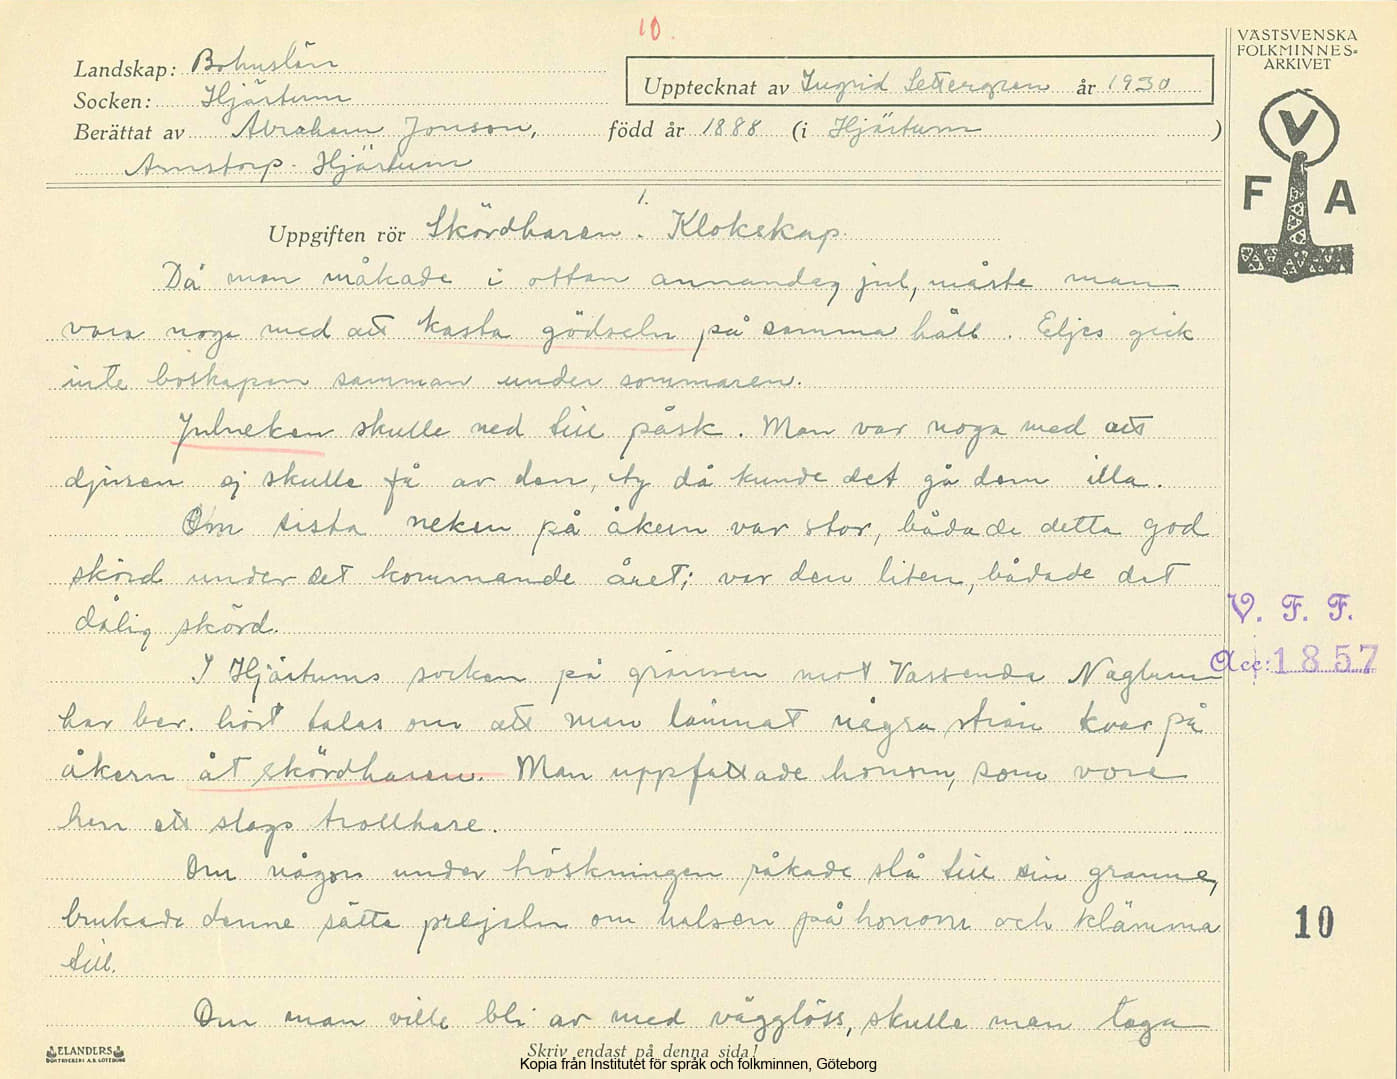 10.
VÄSTSVENSKA
FOLKMINNES-
ARKIVET
Landskap: Bohuslän
Upptecknat av Ingrid Settergren år 1930
Socken: Hjärtum
Berättat av Abraham Jonson, född år 1888 (i Hjärtum )
Arnstorp. Hjärtum
V
F A
1.
Uppgiften rör Skördharen. Klokskap.
Då man måkade i ottan annandag jul, måste man
vara noga med att kasta gödseln på samma håll. Eljes gick
inte boskapen samman under sommaren.
Julneken skulle ned till påsk. Man var noga med att
djuren ej skulle få av den, ty då kunde det gå dem illa.
Om sista neken på åkern var stor, bådade detta god
skörd under det kommande året; var den liten, bådade det
dålig skörd.
V. F. F.
Acc: 1857
I Hjärtums socken på gränsen mot Vassenda Naglum
har ber. hört talas om att man lämnat några strån kvar på
åkern åt skördharen. Man uppfattade honom, som vore
han ett slags trollhare.
Om någon under tröskningen råkade slå till sin granne,
brukade denne sätta prejeln om halsen på honom och klämma
till.
10
Om man ville bli av med vägglöss, skulle man taga
ELANDERS
BOKTRYCKERI A.B. GÖTEBORG
Skriv endast på denna sida!
Kopia från Institutet för språk och folkminnen, Göteborg